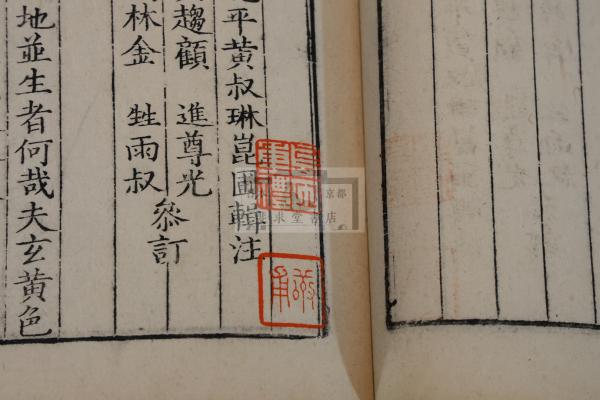 平黃叔琳崑圃輯注
趨顧 進尊光
林金 甡雨叔
參訂
地並生者何哉夫玄黃色
京都
求堂書店